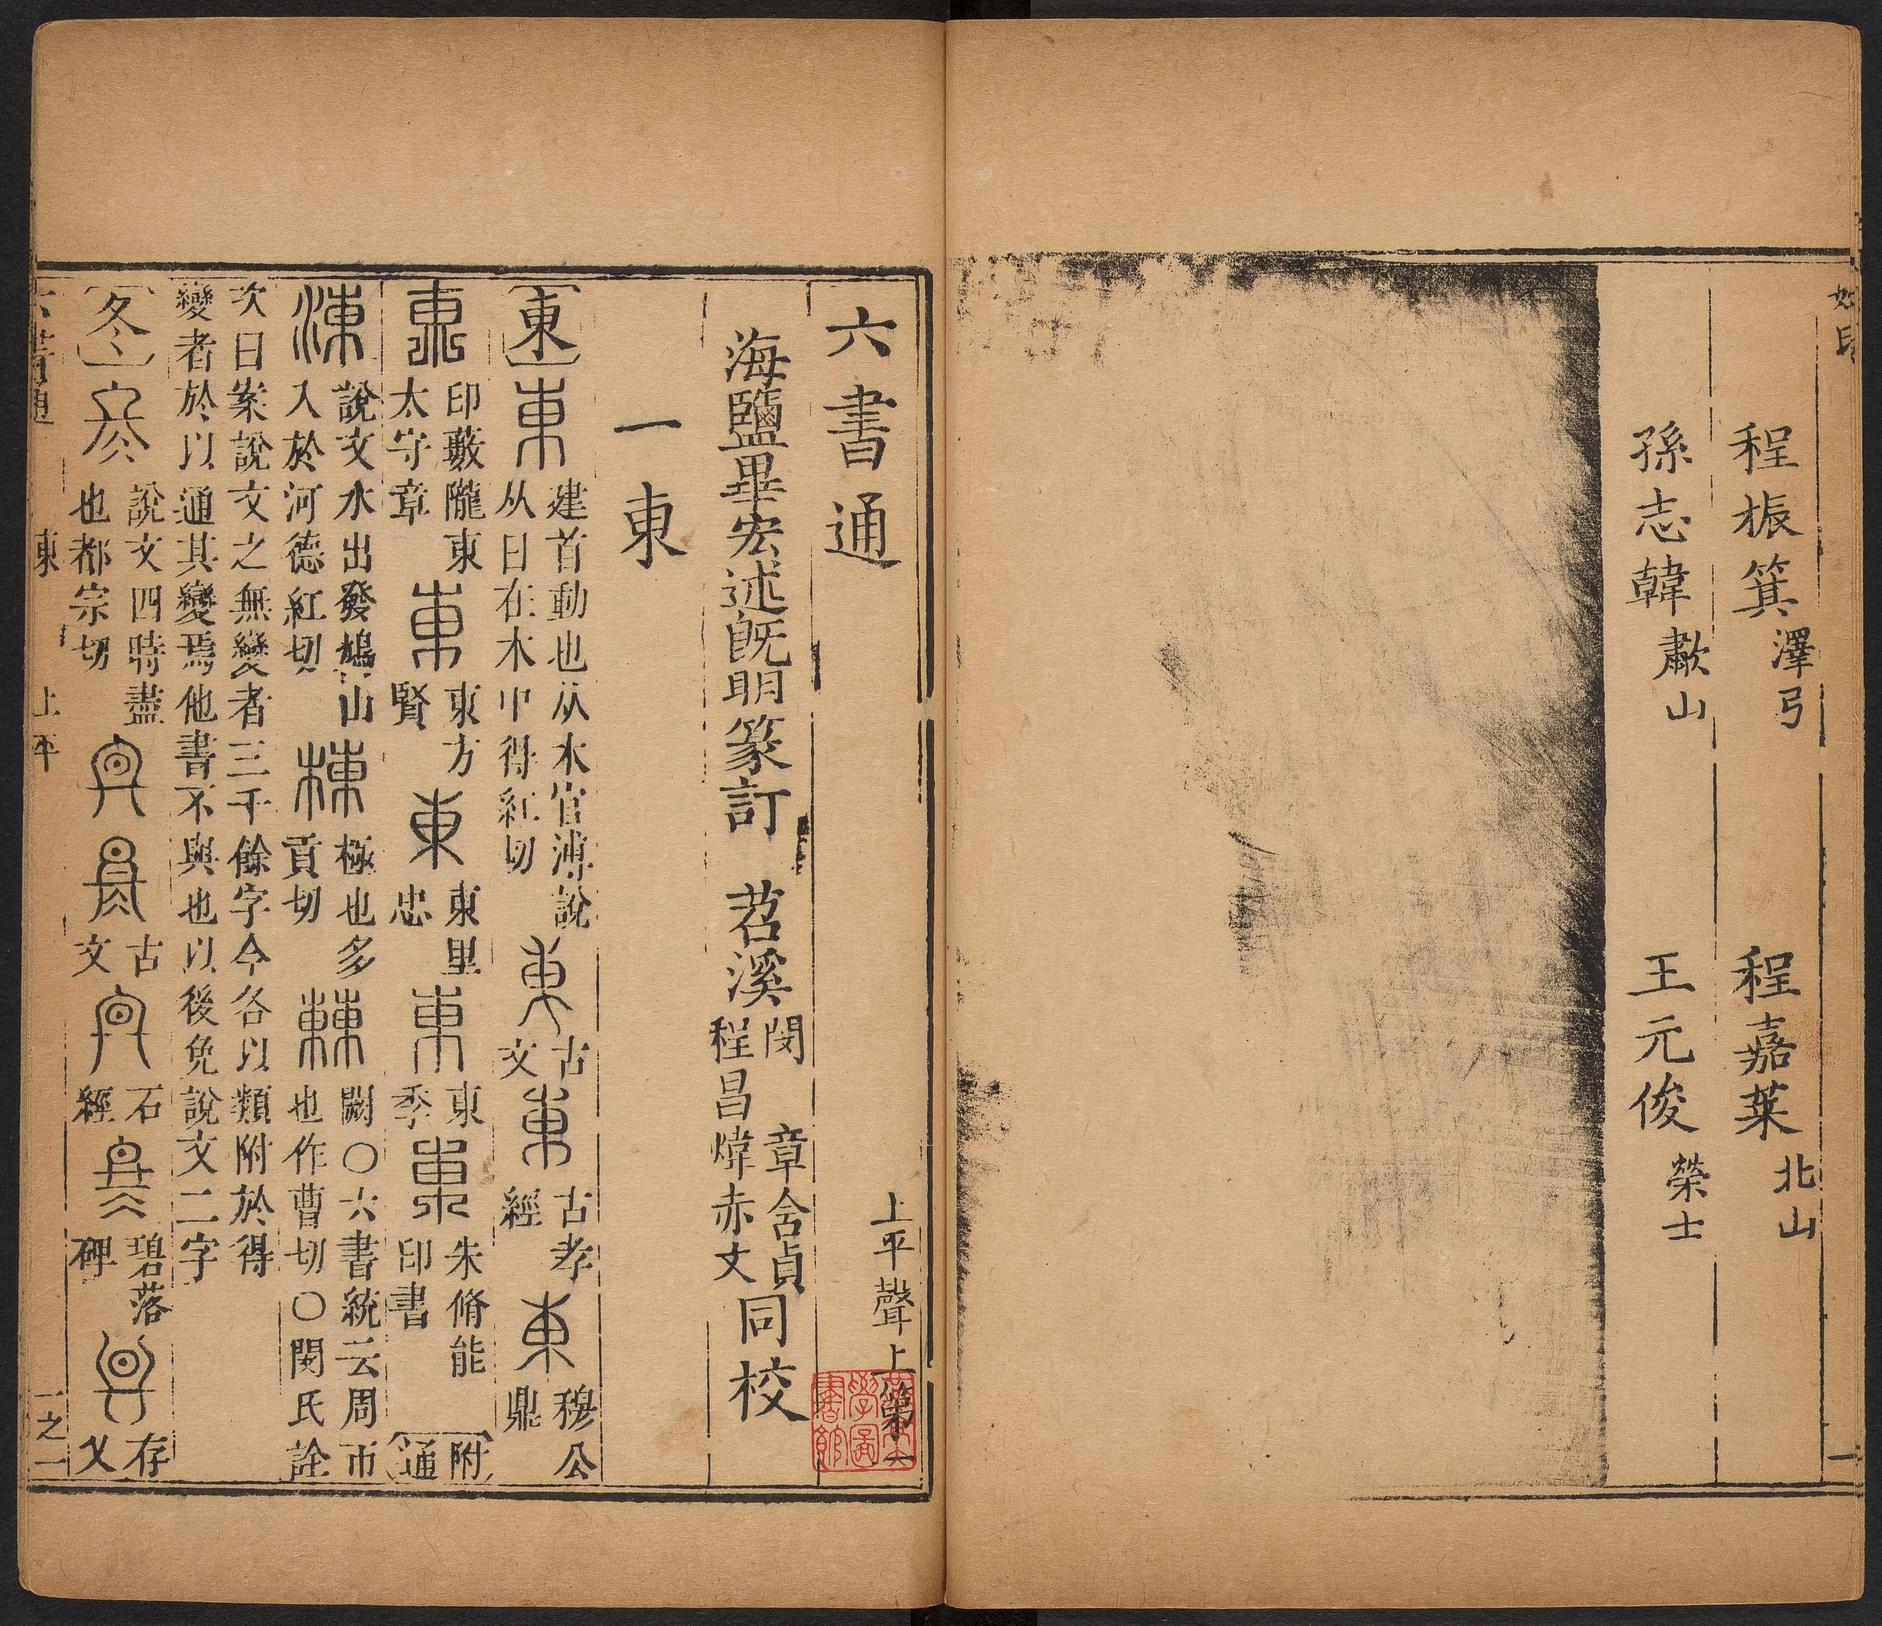 程振箕澤弓 程嘉葉北山
孫志韓歗山 王元俊榮士
一
六書通 上平聲上第一
海鹽畢宏述既明篆訂 苕溪閔章含貞程昌煒赤文同校
一東
東 東 建首動也从木官溥說从日在木中得紅切 東 古文 東 古孝經 東 穆公鼎
東 印藪隴東太守章 東 東方賢 東 東里忠 東 東季 東 朱脩能印書 附通
涷 說文水出發鳩山入於河德紅切 棟 極也多貢切 𣍘 闕〇六書統云周帀也作曹切〇閔氏詮
次曰案說文之無變者三千餘字今各以類附於得
變者於以通其變焉他書不與也以後免說文二字
冬 冬 說文四時盡也都宗切 古文 石經 碧落碑 存乂
六書通 東 上平 一之一